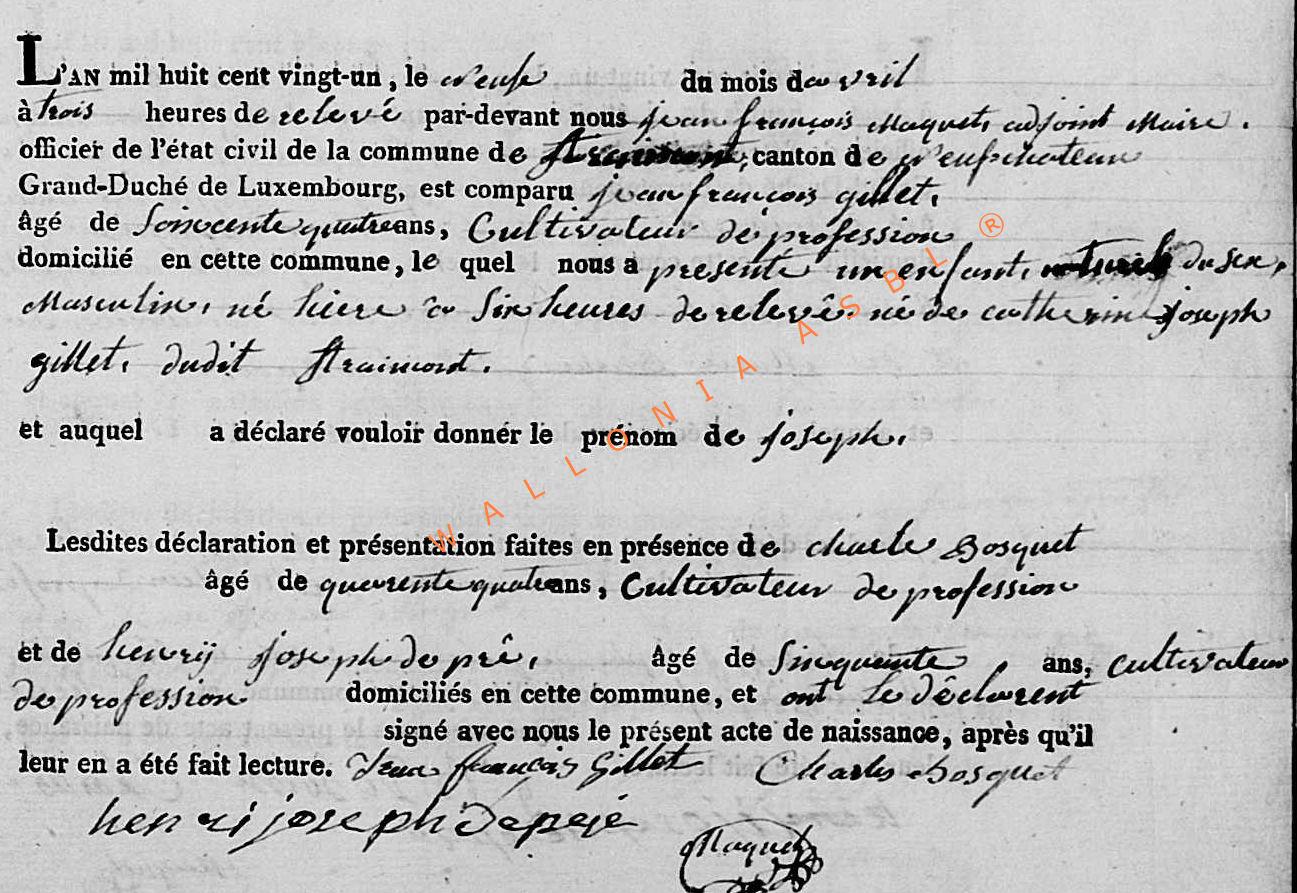 L'AN mil huit cent vingt-un, le neufe du mois davril
à trois heures de relevé par-devant nous jean françois Maquet, adjoint Maire.
officier de l'état civil de la commune de straimont, canton de neufchateau
Grand-Duché de Luxembourg, est comparu jean françois gillet,
âgé de Soixcente quatre ans, Cultivateur de profession
domicilié en cette commune, le quel nous a presenté un enfant, du sex,
Masculin, né hiere a Six heures de relevé, né de catherine joseph
gillet, dudit straimont.
et auquel a déclaré vouloir donner le prénom de joseph,
Lesdites déclaration et présentation faites en présence de charle Bosquet
âgé de quarente quatre ans, Cultivateur de profession
et de henrij joseph de pré, âgé de Sinquante, ans, cultivateur
de profession domiciliés en cette commune, et ont le déclarent
signé avec nous le présent acte de naissance, après qu'il
leur en a été fait lecture. Jean françois Gillet Charles Bosquet
henri joseph depejé
Maquet
WALLONIA ASBL ®